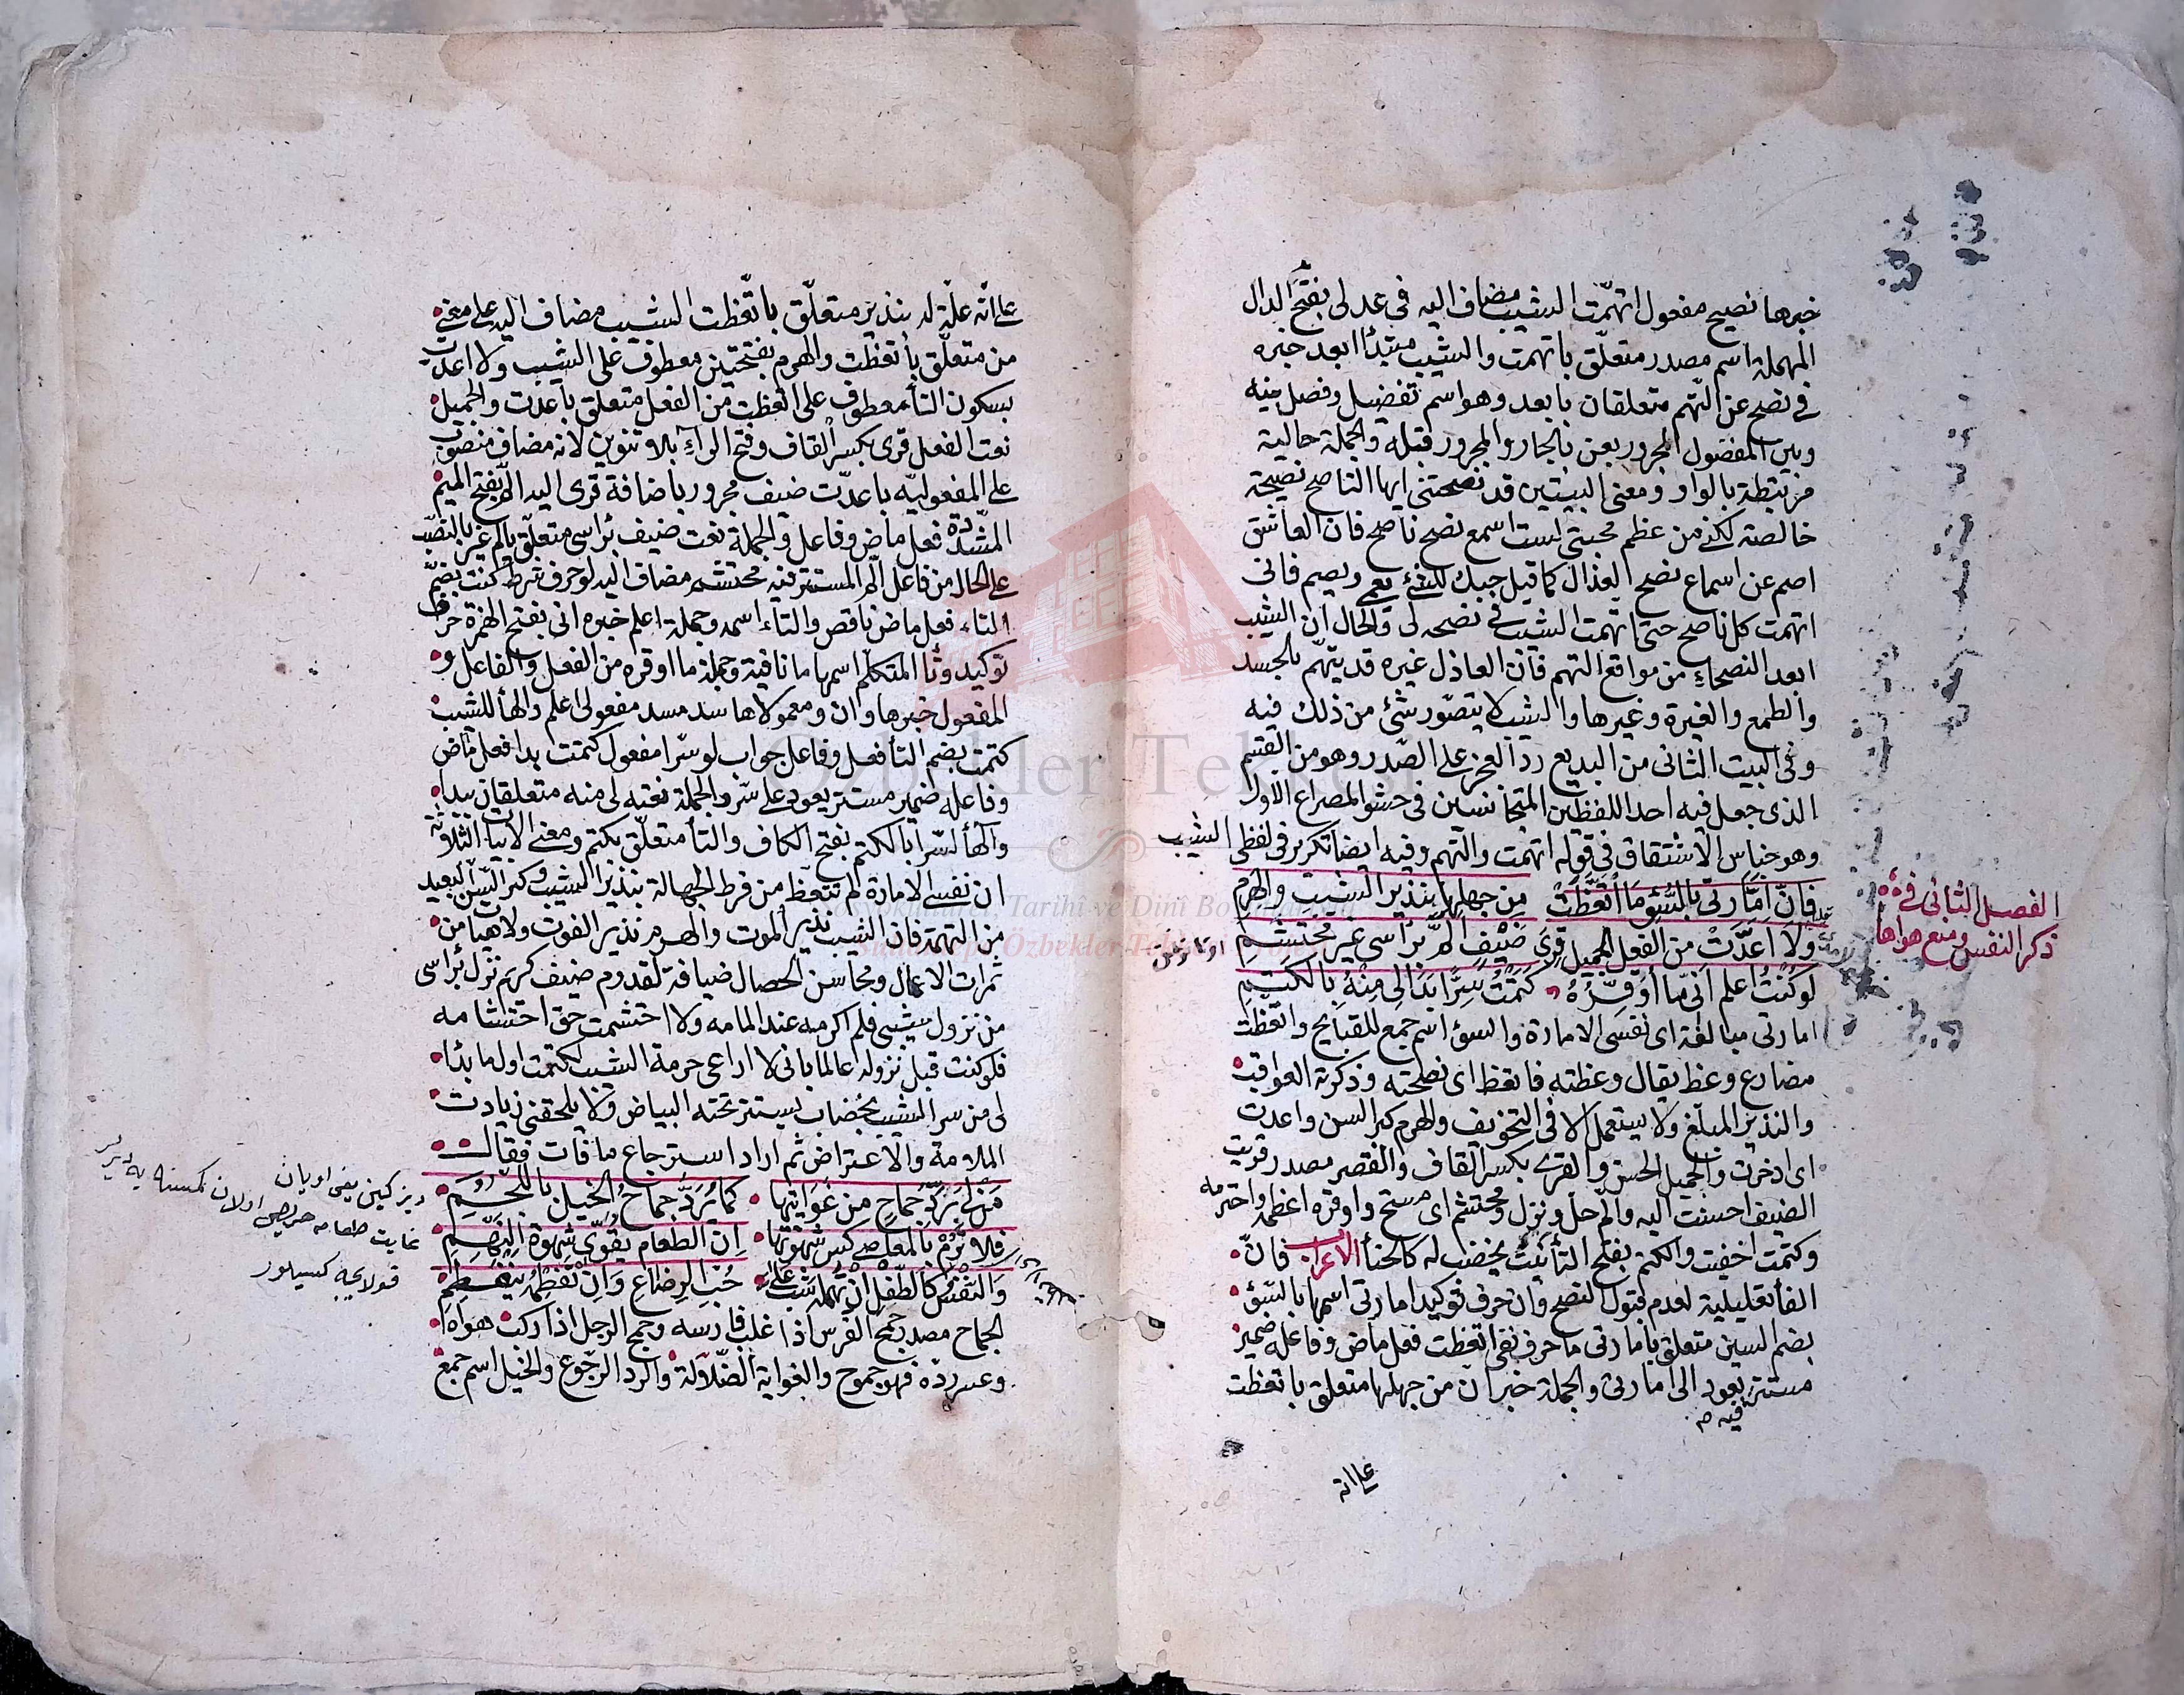 خبرها نصيح مفعول اتهمت الشيب مضاف اليه فى عدلى بفتح الدال
المهملة اسم مصدر متعلق باتهمت والشيب مبتدأ ابعد خبره
فى نصح عن التهم متعلقان بابعد وهو اسم تفضيل وفصل بينه
وبين المفضول المجرور بعن بالجار والمجرور قبله والجملة حالية
مرتبطة بالواو ومعنى البيتين قد نصحتنى ايها الناصح نصيحة
خالصة لكنى من عظم محبتى لست اسمع نصح ناصح فان العاشق
اصم عن اسماع نصح العذال كما قيل حبك للشئ يعمى ويصم فانى
اتهمت كل ناصح حتى اتهمت الشيب فى نصحه لى والحال ان الشيب
ابعد النصحاء من مواقع التهم فان العاذل غيره قد يتهم بالحسد
والطمع والغيرة وغيرها والشيب لا يتصور شئ من ذلك فيه
وفى البيت الثانى من البديع رد العجز على الصدر وهو من القسم
الذى جعل فيه احد اللفظين المتجانسين فى حشو المصراع الاول
وهو جناس الاشتقاق فى قوله اتهمت والتهم وفيه ايضا تكرير فى لفظى الشيب
فَاِنَّ اَمَّارَتى بِالسُّوءِ مَا اتَّعَظَتْ مِن جهلِها بنذير الشيبِ والهرم
الفصل الثانى فى
ذكر النفس ومنع هواها
وَلَا اَعَدَّتْ من الفعل الجميل قِرَى ضَيْفٍ اَلَمَّ برأسى غير محتشم
لو كُنْتُ اعلم اَنّى ما اُوَقِّرُهُ كَتَمْتُ سِرًّا بَدَا لِى مِنْهُ بالكَتَمِ
امارتى مبالغة اى نفسى الامارة والسوء اسم جمع للقبايح واتعظت
مضارع وعظ يقال وعظته فاتعظ اى نصحته وذكرته العواقب
والنذير المبلغ ولا يستعمل الا فى التخويف والهرم كبر السن واعدت
اى ادخرت والجميل الحسن والقرى بكسر القاف والقصر مصدر قريت
الضيف احسنت اليه والم حل ونزل ومحتشم اى مستح واوقره اعظمه واحترمه
وكتمت اخفيت والكتم بفتح التأ نبت يخضب له كالحنأ الاعراب فانّ
الفأ تعليلية لعدم قبول النصح وان حرف توكيد امارتى اسمها بالسوء
بضم السين متعلق بامارتى ما حرف نفى اتعظت فعل ماض وفاعله ضمير
مستتر فيه يعود الى امارتى والجملة خبر ان من جهلها متعلق باتعظت
على انه
على انه علة له بنذير متعلق باتعظت الشيب مضاف اليه على معنى
من متعلق باتعظت والهرم بفتحتين معطوف على الشيب ولا اعدت
بسكون التأ معطوف على اتعظت من الفعل متعلق باعدت والجميل
نعت الفعل قرى بكسر القاف وفتح الرآء بلا تنوين لانه مضاف منصوب
على المفعولية باعدت ضيف مجرور باضافة قرى اليه الم بفتح الميم
المشددة فعل ماض وفاعل والجملة نعت ضيف برأسى متعلق بالم غير بالنصب
على الحال من فاعل الم المستتر فيه محتشم مضاف اليه لو حرف شرط كنت بضم
التاء فعل ماض ناقص والتاء اسمه وجملة اعلم خبره انى بفتح الهمزة حرف
توكيد ونا المتكلم اسمها ما نافية وجملة ما اوقره من الفعل والفاعل و
المفعول خبرها وان ومعمولاها سد مسد مفعولى اعلم والهأ للشيب
كتمت بضم التأ فعل وفاعل جواب لو سرا مفعول كتمت بدا فعل ماض
وفاعله ضمير مستتر يعود على سر والجملة نعته لى منه متعلقان ببدا
والهأ لسرا بالكتم بفتح الكاف والتأ متعلق بكتم ومعنى الابيات الثلاثة
ان نفسى الامارة لم تتعظ من فرط الجهالة بنذير الشيب وكبر السن البعيد
من التهمة فان الشيب نذير الموت والهرم نذير الفوت ولا هيأت من
ثمرات الاعمال ومحاسن الخصال ضيافة لقدوم ضيف كريم نزل برأسى
من نزول شيبى فلم اكرمه عند المامه ولا احتشمت حق احتشامه
فلو كنت قبل نزوله عالما بانى لا اراعى حرمة الشيب لكتمت اول ما بدا
لى من سر الشيب بخضاب يستتر تحته البياض ولا يلحقنى زيادة
الملامة والاعتراض ثم اراد استرجاع ما فات فقال
مَن لى بِرَدِّ جِمَاحٍ مِن غَوَايَتِها كما يُرَدُّ جماحُ الخيل باللجم
فلا تَرُمْ بالمعاصى كسر شهوتها اِنّ الطعام يُقَوّى شهوة النَّهِم
وَالنَّفْسُ كَالطّفلِ اِن تُهْمِلْهُ شَبَّ عَلَى حُبِّ الرضاع وَاِن تَفْطِمْهُ يَنْفَطِمِ
الجماح مصدر جمح الفرس اذا غلب فارسه وجمح الرجل اذا ركب هواه
وعسر رده فهو جموح والغواية الضلالة والرد الرجوع والخيل اسم جمع
غايت طعامه حريص اولان كمسنه يه ديرلر